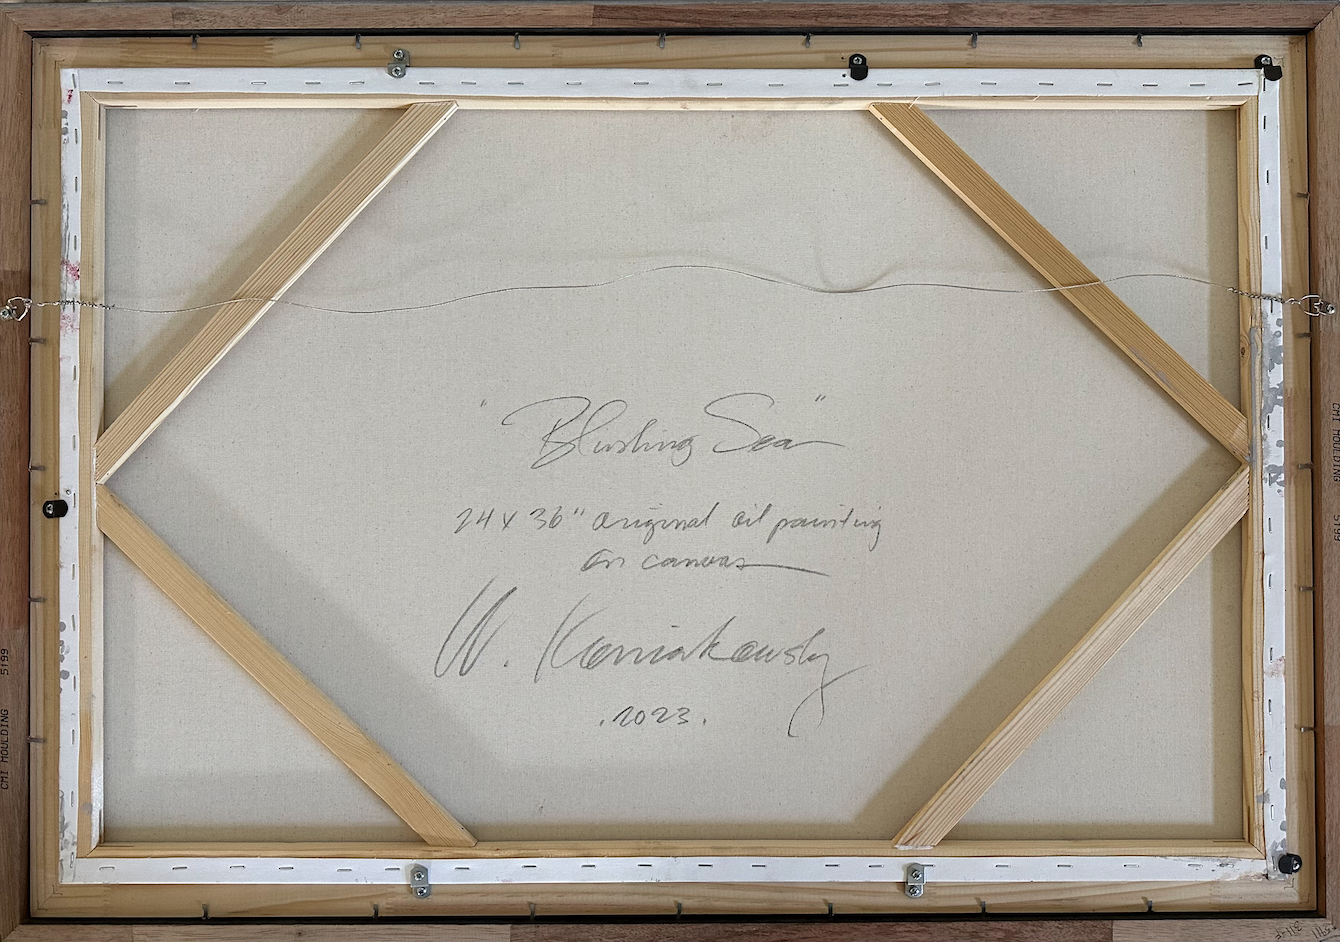 "Blushing Sea"
24 x 36" original oil painting
on canvas
W. Koniakowsky
.2023.
CMI MOULDING 5199
CMI MOULDING 5199